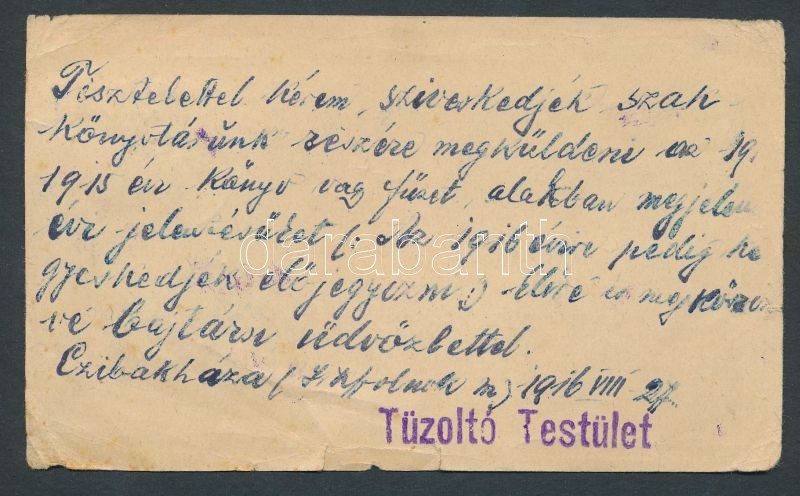 Tisztelettel kérem, sziveskedjék szak
könyvtárunk részére megküldeni az 19
1915 év könyv vagy füzet alakban megjelen
évi jelentésüket (: Az 1916 évre pedig ke
gyeskedjék előjegyezni :) Elöré is megköszön
vé bajtársi üdvözlettel.
Czibakháza (J. N. K. Szolnok m.) 1916 VIII 27.
Tüzoltó Testület
darabanth